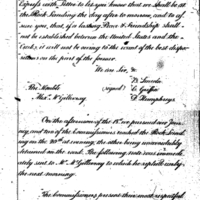 Express with, Letter to let you know that we shall be at
the Rock Landing the day after to morrow, and to as-
sure you, that, if a lasting Peace & Friendship shall
not be established between the United States and the
Creeks, it will not be owing to the want of the best dispo-
sitions on the part of the former.
We are Sir, &c
B. Lincoln
The Honble signed C. Griffin
Alexr McGillivray D. Humphreys
On the afternoon of the 18th we pursued our jour-
ney, and two of the Commissioners reached the Rock Land-
ing on the 20th at evening, the other being unavoidably
detained on the road. The following note was immedi-
ately sent to Mr McGillivray to which he replied early the
next morning.
The Commissioners present their most respectful